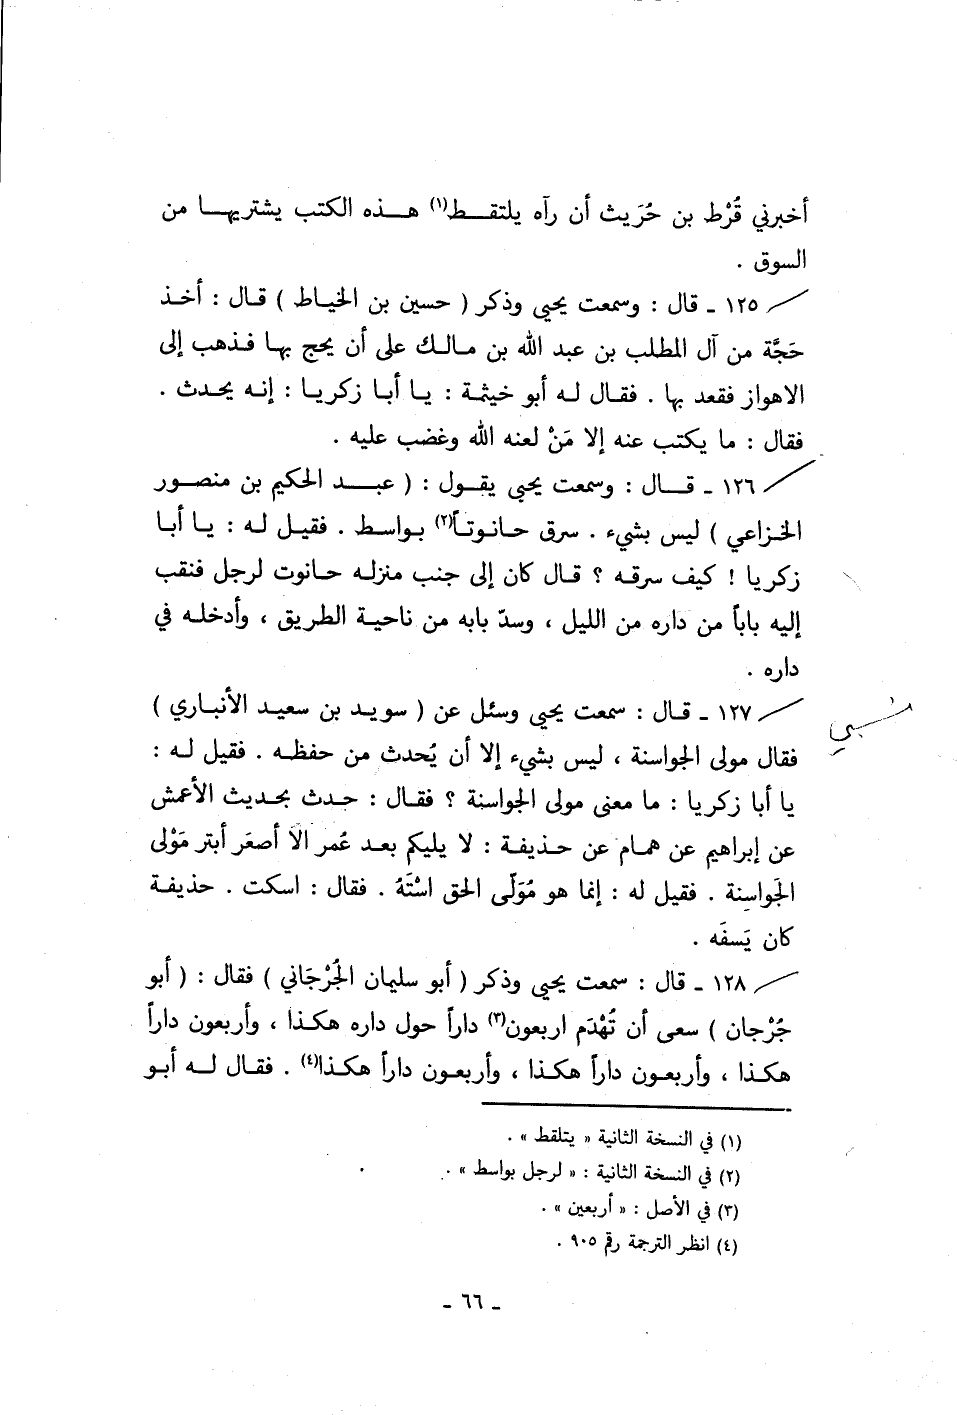 أخبرني قُرْط بن حُرَيث أن رآه يلتقط(١) هذه الكتب يشتريها من
السوق .
١٢٥ ـ قال : وسمعت يحيى وذكر ( حسين بن الخياط ) قال : أخذ
حَجَّة من آل المطلب بن عبد الله بن مالك على أن يحج بها فذهب إلى
الاهواز فقعد بها . فقال له أبو خيثمة : يا أبا زكريا : إنه يحدث .
فقال : ما يكتب عنه إلا مَنْ لعنه الله وغضب عليه .
١٢٦ ـ قال : وسمعت يحيى يقول : ( عبد الحكيم بن منصور
الخزاعي ) ليس بشيء . سرق حانوتاً(٢) بواسط . فقيل له : يا أبا
زكريا ! كيف سرقه ؟ قال كان إلى جنب منزله حانوت لرجل فنقب
إليه باباً من داره من الليل ، وسدّ بابه من ناحية الطريق ، وأدخله في
داره .
١٢٧ ـ قال : سمعت يحيى وسئل عن ( سويد بن سعيد الأنباري )
فقال مولى الجواسنة ، ليس بشيء إلا أن يُحدث من حفظه . فقيل له :
يا أبا زكريا : ما معنى مولى الجواسنة ؟ فقال : حدث بحديث الأعمش
عن إبراهيم عن همام عن حذيفة : لا يليكم بعد عُمر الا أصعَر أبتر مَوْلى
الجَواسنة . فقيل له : إنما هو مُوَلّى الحق اسْتَهُ . فقال : اسكت . حذيفة
كان يَسفَه .
١٢٨ ـ قال : سمعت يحيى وذكر ( أبو سليمان الجُرْجَاني ) فقال : ( أبو
جُرْجان ) سعى أن تُهْدَم اربعون(٣) داراً حول داره هكذا ، وأربعون داراً
هكذا ، وأربعون داراً هكذا ، وأربعون داراً هكذا(٤) . فقال له أبو
(١) في النسخة الثانية « يتلقط » .
(٢) في النسخة الثانية : « لرجل بواسط » .
(٣) في الأصل : « أربعين » .
(٤) انظر الترجمة رقم ٩٠٥ .
ـ ٦٦ ـ